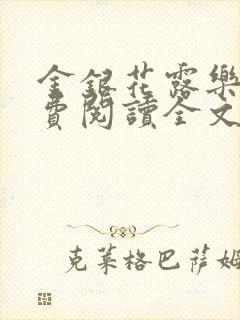 金銀花露樂
費閱讀全文
克莱格巴萨姆